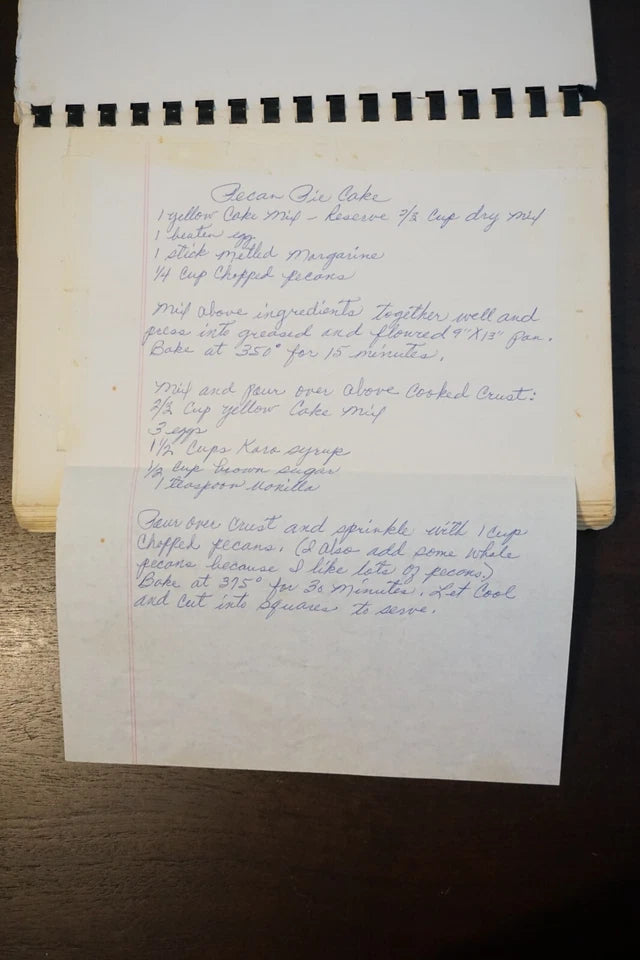 Pecan Pie Cake
1 yellow Cake Mix - Reserve 2/3 Cup dry Mix
1 beaten egg
1 stick Metled Margarine
1/4 Cup Chopped pecans
Mix above ingredients together well and
press into greased and floured 9"X13" pan.
Bake at 350° for 15 minutes.
Mix and Pour over above Cooked Crust:
2/3 Cup yellow Cake Mix
3 eggs
1 1/2 Cups Karo syrup
1/2 Cup brown sugar
1 teaspoon Vanilla
Pour over Crust and sprinkle with 1 Cup
Chopped pecans. (I also add some whole
pecans because I like lots of pecans.)
Bake at 375° for 30 Minutes. Let Cool
and Cut into Squares to serve.